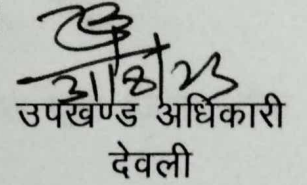 31/8/23
उपखण्ड अधिकारी
देवली